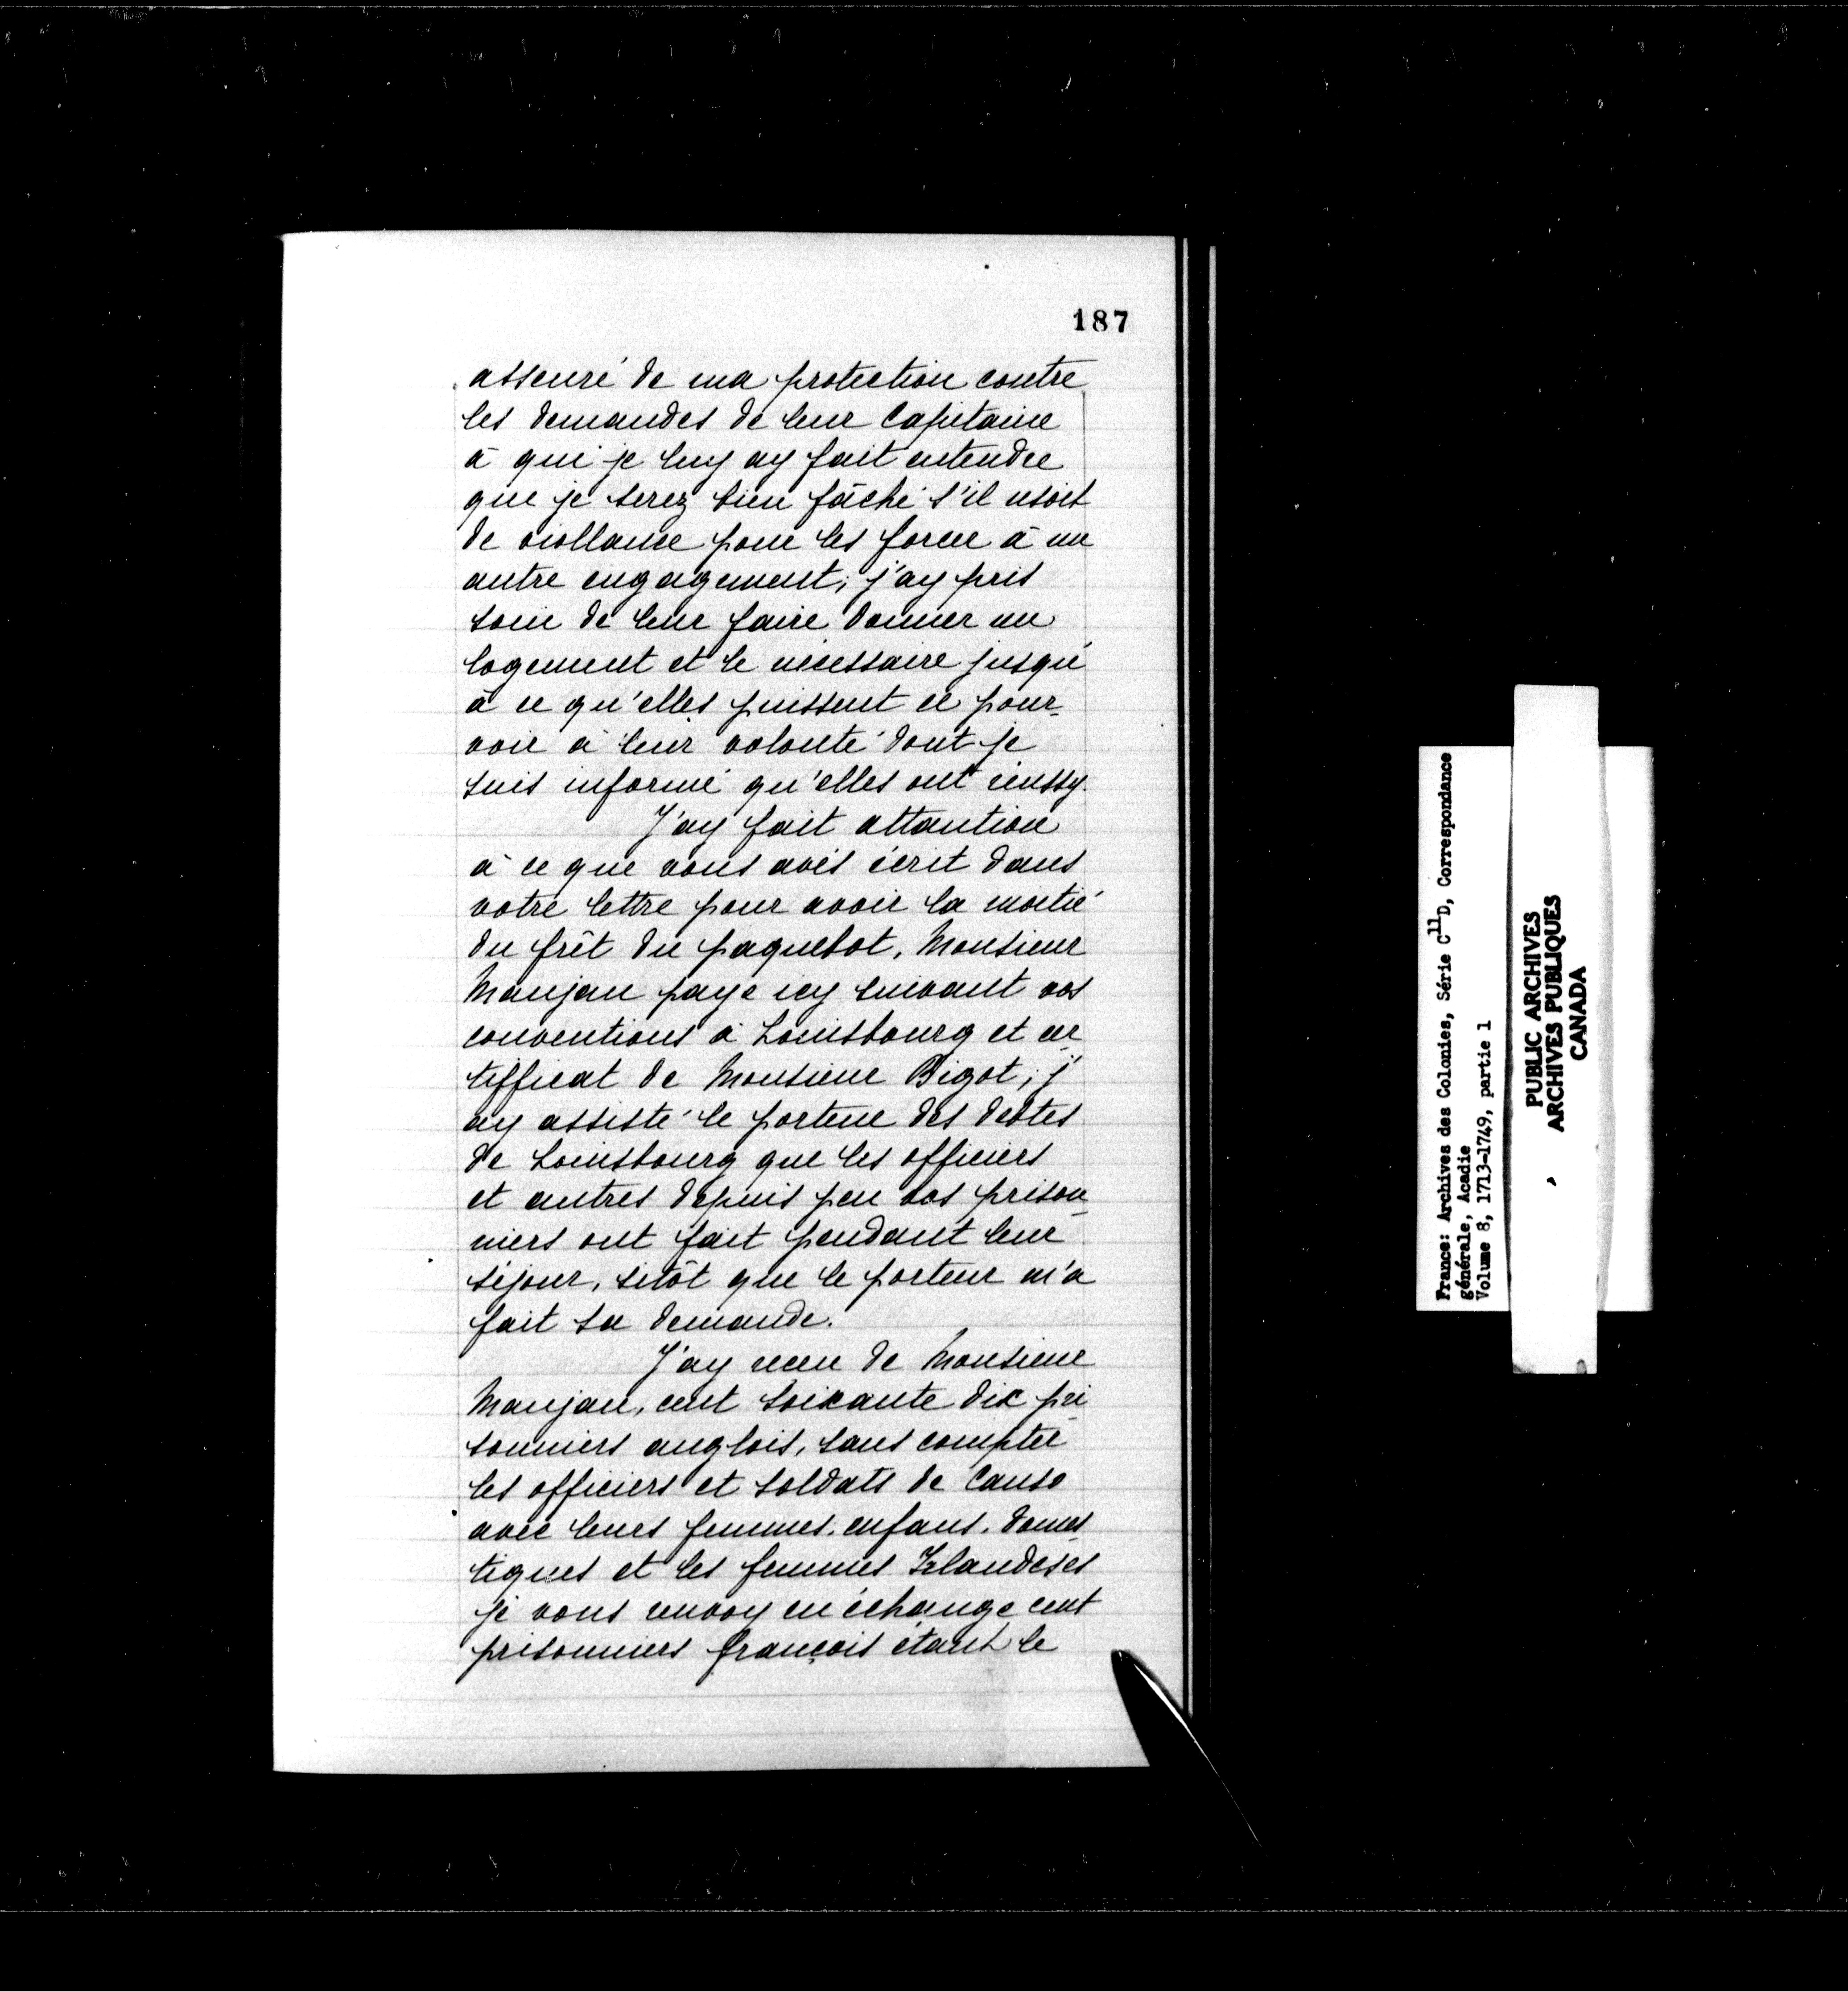 187
asseuré de ma protection contre
les demandes de leur Capitaine
à qui je luy ay fait entendre
que je serez bien fâché s'il usoit
de viollance pour les forcer à un
autre engagement; j'ay pris
soin de leur faire donner un
logement et le nécessaire jusqu'
à ce qu'elles puissent ce pour-
voir à leur volonté dont je
suis informé qu'elles ont réussy.
J'ay fait attantion
à ce que vous avés écrit dans
votre lettre pour avoir la moitié
du frêt du paquebot, Monsieur
Manjau paye icy suivant vos
conventions à Louisbourg et cer-
tifficat de Monsieur Bigot; j'
ay assisté le porteur des debtes
de Louisbourg que les officiers
et autres depuis peu vos prison-
niers ont fait pendant leur
séjour, sitôt que le porteur m'a
fait sa demande.
J'ay receu de Monsieur
Manjau, cent soixante dix pri-
sonniers anglois, sans compter
les officiers et soldats de Canso
avec leurs femmes, enfans, domes-
tiques et les femmes Izlandeses
je vous renvoy en échange cent
prisonniers françois étant le
France: Archives des Colonies, Série C11D, Correspondance
générale, Acadie
Volume 8, 1713-1749, partie 1
PUBLIC ARCHIVES
ARCHIVES PUBLIQUES
CANADA